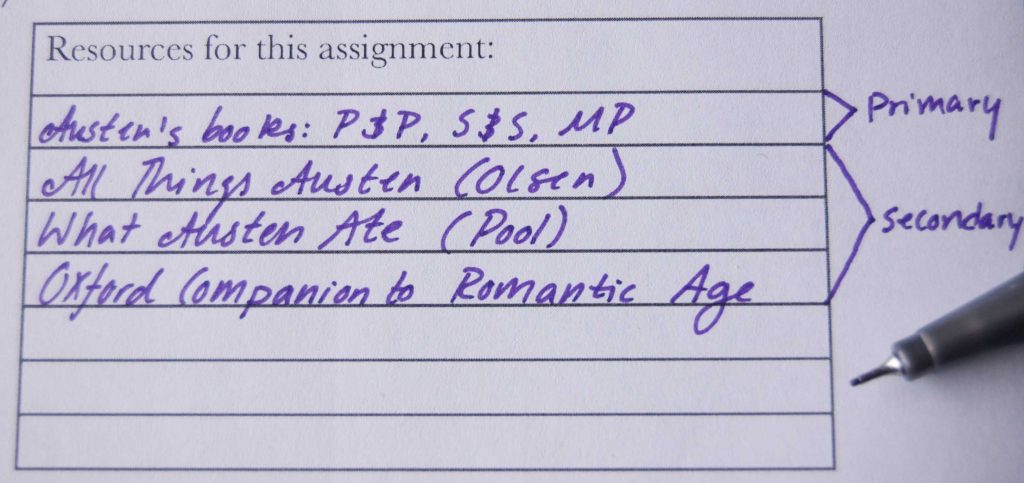 Resources for this assignment:
Austen's books: P&P, S&S, MP
Primary
All Things Austen (Olsen)
What Austen Ate (Pool)
secondary
Oxford Companion to Romantic Age